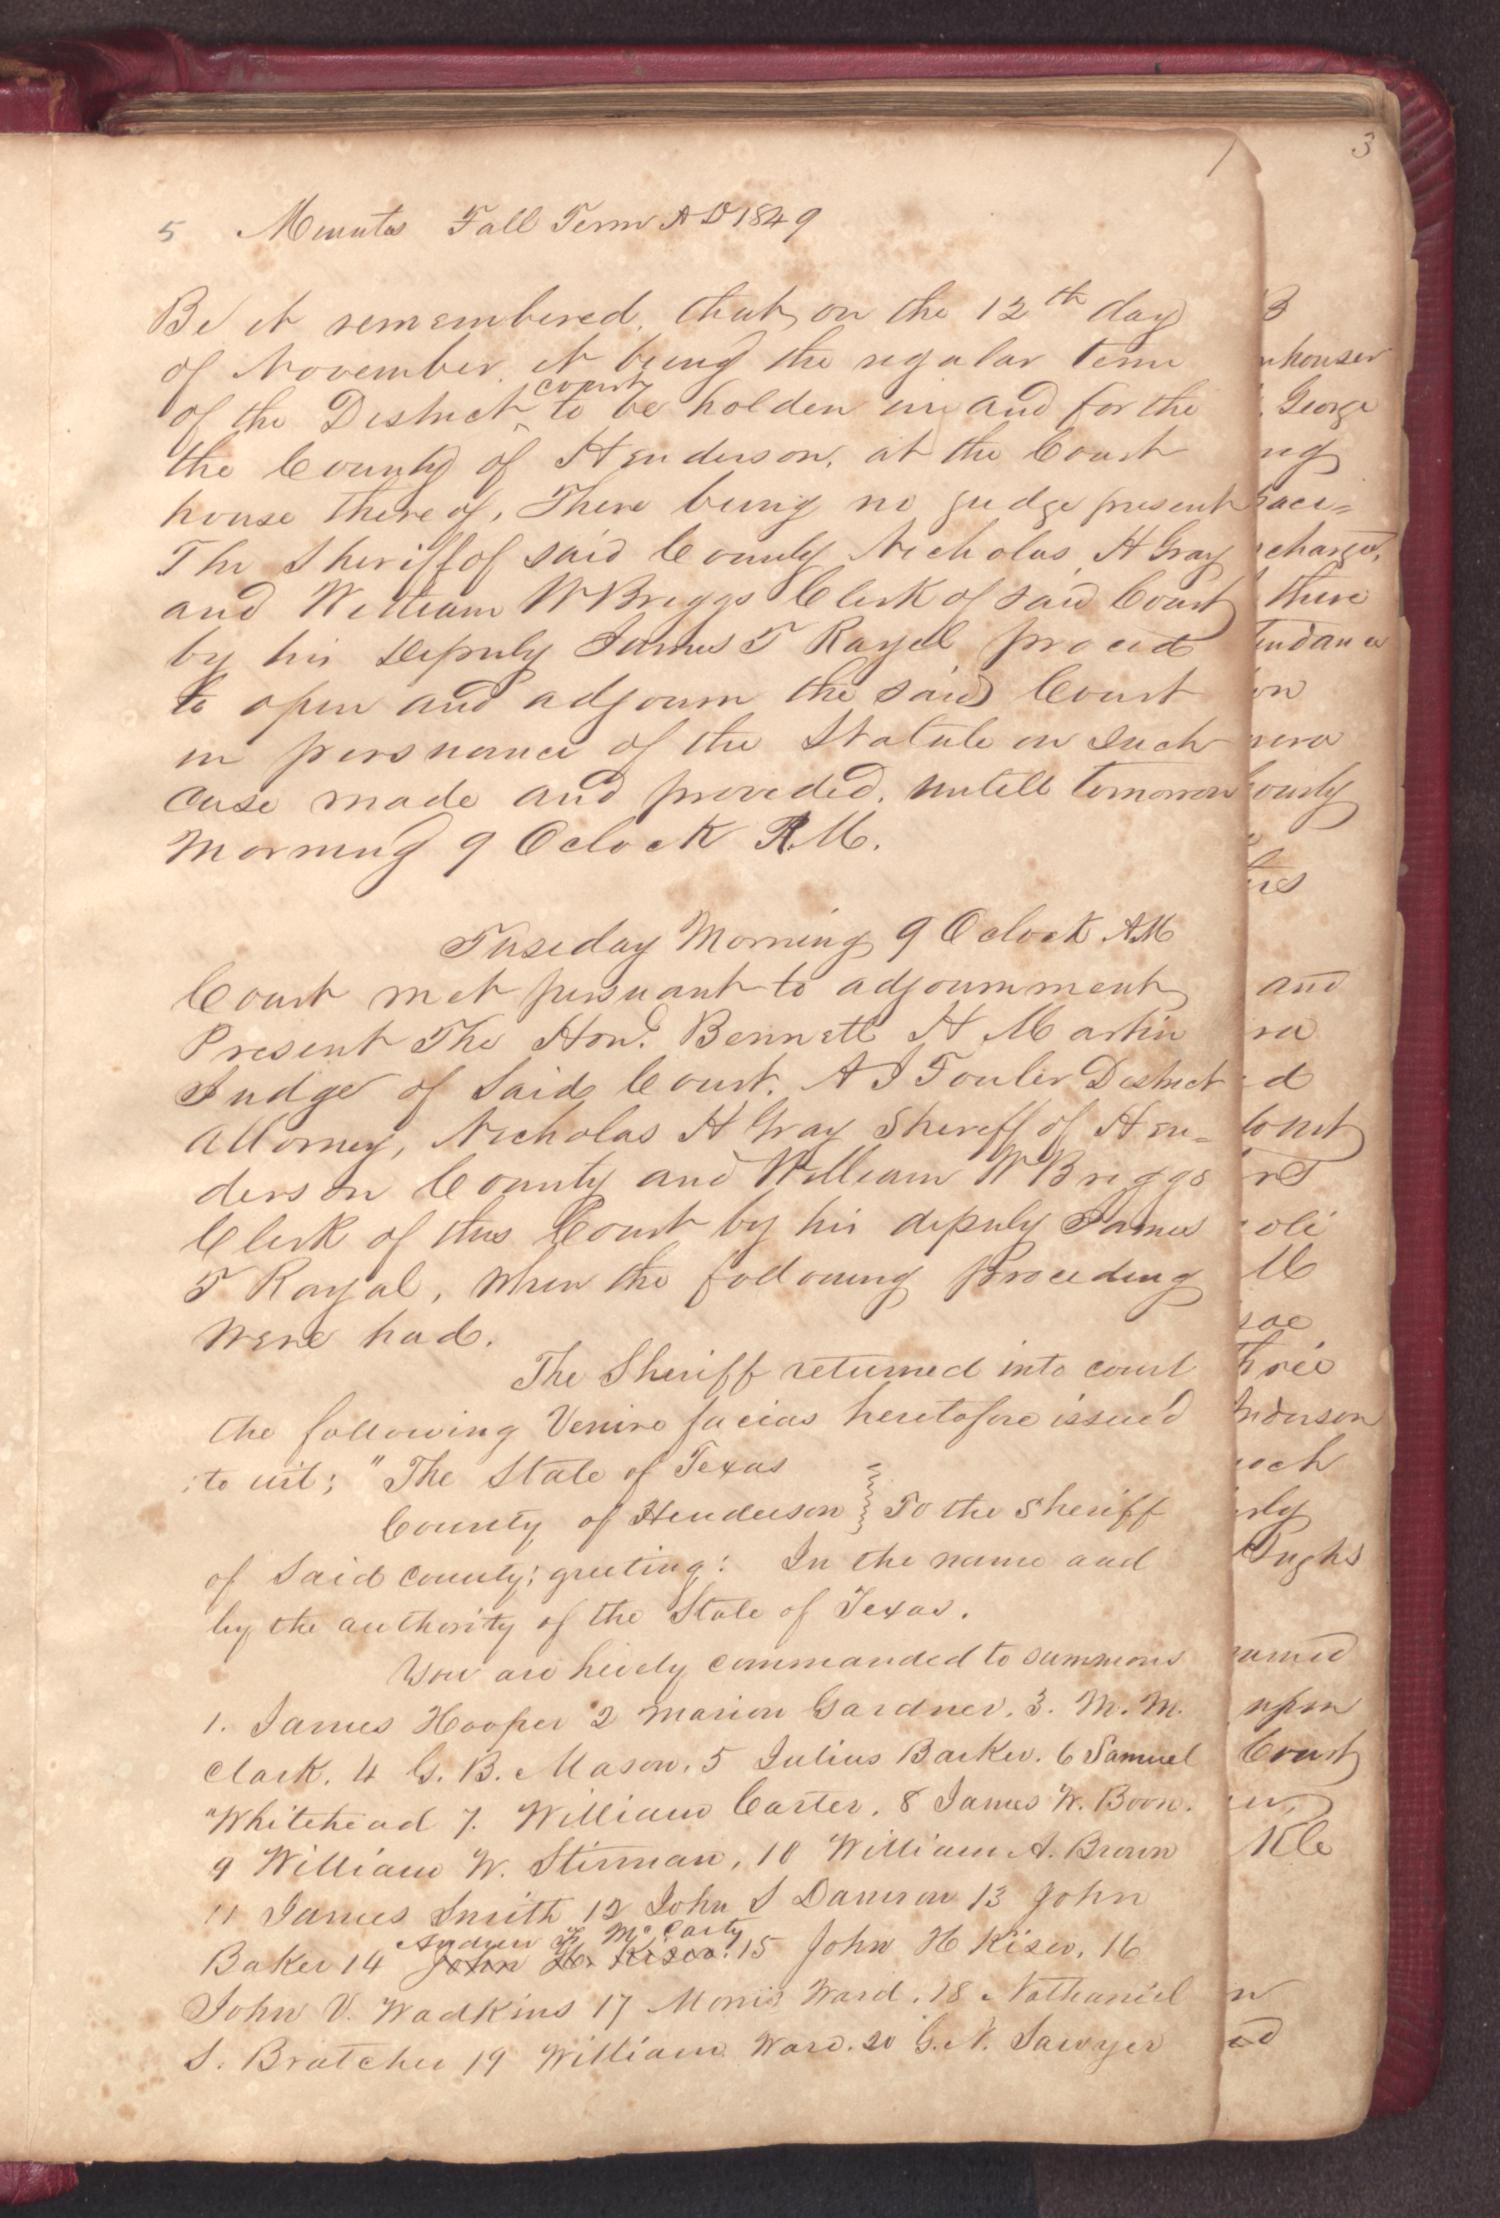 3
1
5 Minutes Fall Term A D 1849
Be it remembered, that on the 12th day
of November, it being the regular term
of the District court to be holden in and for the
the County of Henderson, at the Court
house thereof, There being no judge present
The Sheriff of said County Nicholas H Gray
and William W Briggs Clerk of said Court
by his Deputy James T Rayel proced
to open and adjourn the said Court
in persuance of the Statute in such
case made and provided, untill tomorrow
Morning 9 Oclock A.M.
Tuseday Morning 9 Oclock AM
Court met pursuant to adjournment
Present The Hond. Bennett H Martin
Judge of Said Court, A J Fouler District
Attorney, Nicholas H Gray Sheriff of Hen=
derson County and William W Briggs
Clerk of this Court by his deputy James
T Rayal, when the following proceding
were had.
The Sheriff returned into court
the following Venire facias heretofore issued
to wit; "The State of Texas
County of Henderson } To the Sheriff
of Said county; greeting: In the name and
by the authority of the State of Texas.
You are hereby commanded to summons
1. James Hooper 2 Marion Gardner, 3. M. M.
Clark, 4 G. B. Mason, 5 Julius Barker, 6 Samuel
Whitehead 7. William Carter, 8 James W. Boon.
9 William W. Stirman, 10 William A. Brown
11 James Smith 12 John S Damron 13 John
Baker 14 John H. Kiser Andrew F. McCarty 15 John H Kiser, 16
John V. Wadkins 17 Morris Ward, 18 Nathaniel
S. Bratcher 19 William Ward. 20 G. N. Sawyer
George
there
and
Court
upon